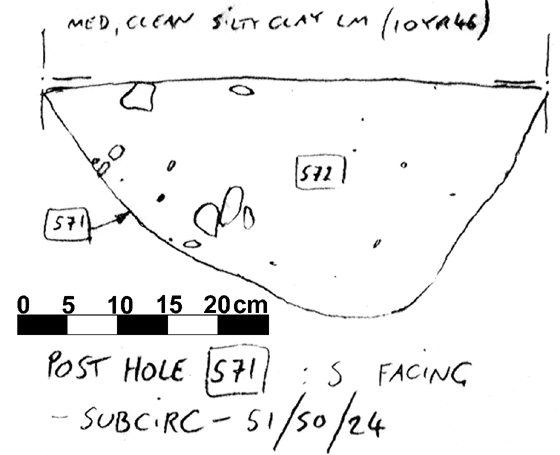 MED, CLEAN SILTY CLAY LM (10YR46)
572
571
0 5 10 15 20cm
POST HOLE 571 : S FACING
- SUBCIRC - 51/50/24